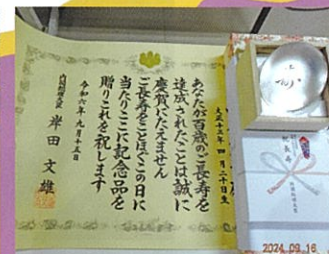 大正十三年 四月二十日生
あなたが百歳のご長寿を
達成されたことは誠に
慶賀にたえません
ご長寿をことほぐこの日に
当たりここに記念品を
贈りこれを祝します
令和六年九月十五日
内閣総理大臣 岸田文雄
寿
祝長寿
内閣総理大臣
2024 09 16